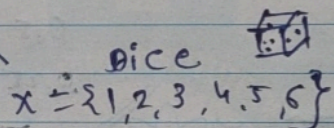 Dice
x = {1, 2, 3, 4, 5, 6}